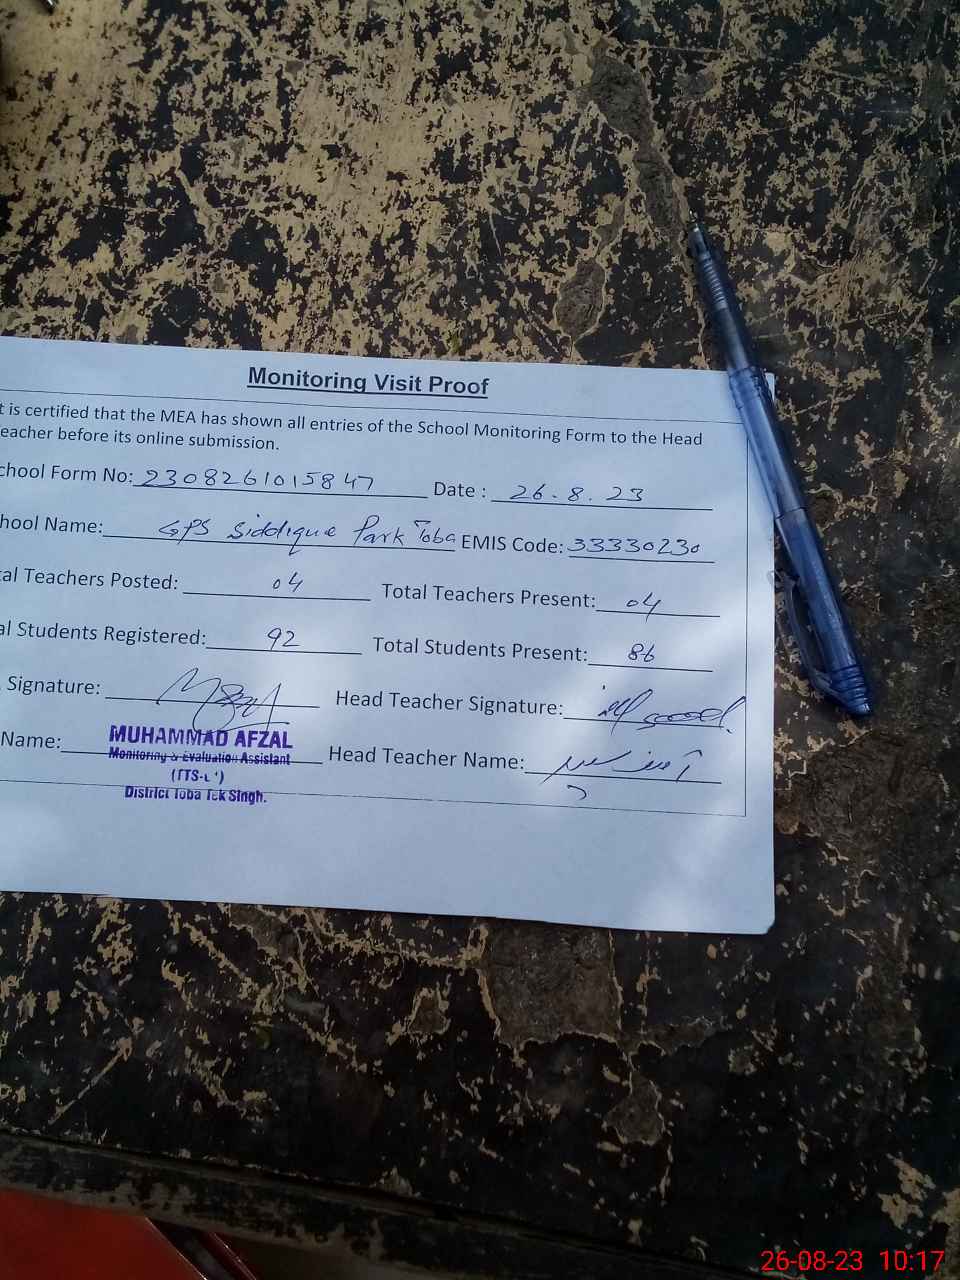 Monitoring Visit Proof
t is certified that the MEA has shown all entries of the School Monitoring Form to the Head
eacher before its online submission.
chool Form No: 2308261015847 Date : 26.8.23
hool Name: GPS Siddique Park Toba EMIS Code: 33330230
tal Teachers Posted: 04 Total Teachers Present: 04
al Students Registered: 92 Total Students Present: 86
Signature: Head Teacher Signature:
Name: MUHAMMAD AFZAL Head Teacher Name:
Monitoring & Evaluation Assistant
District Toba Tek Singh.
26-08-23 10:17